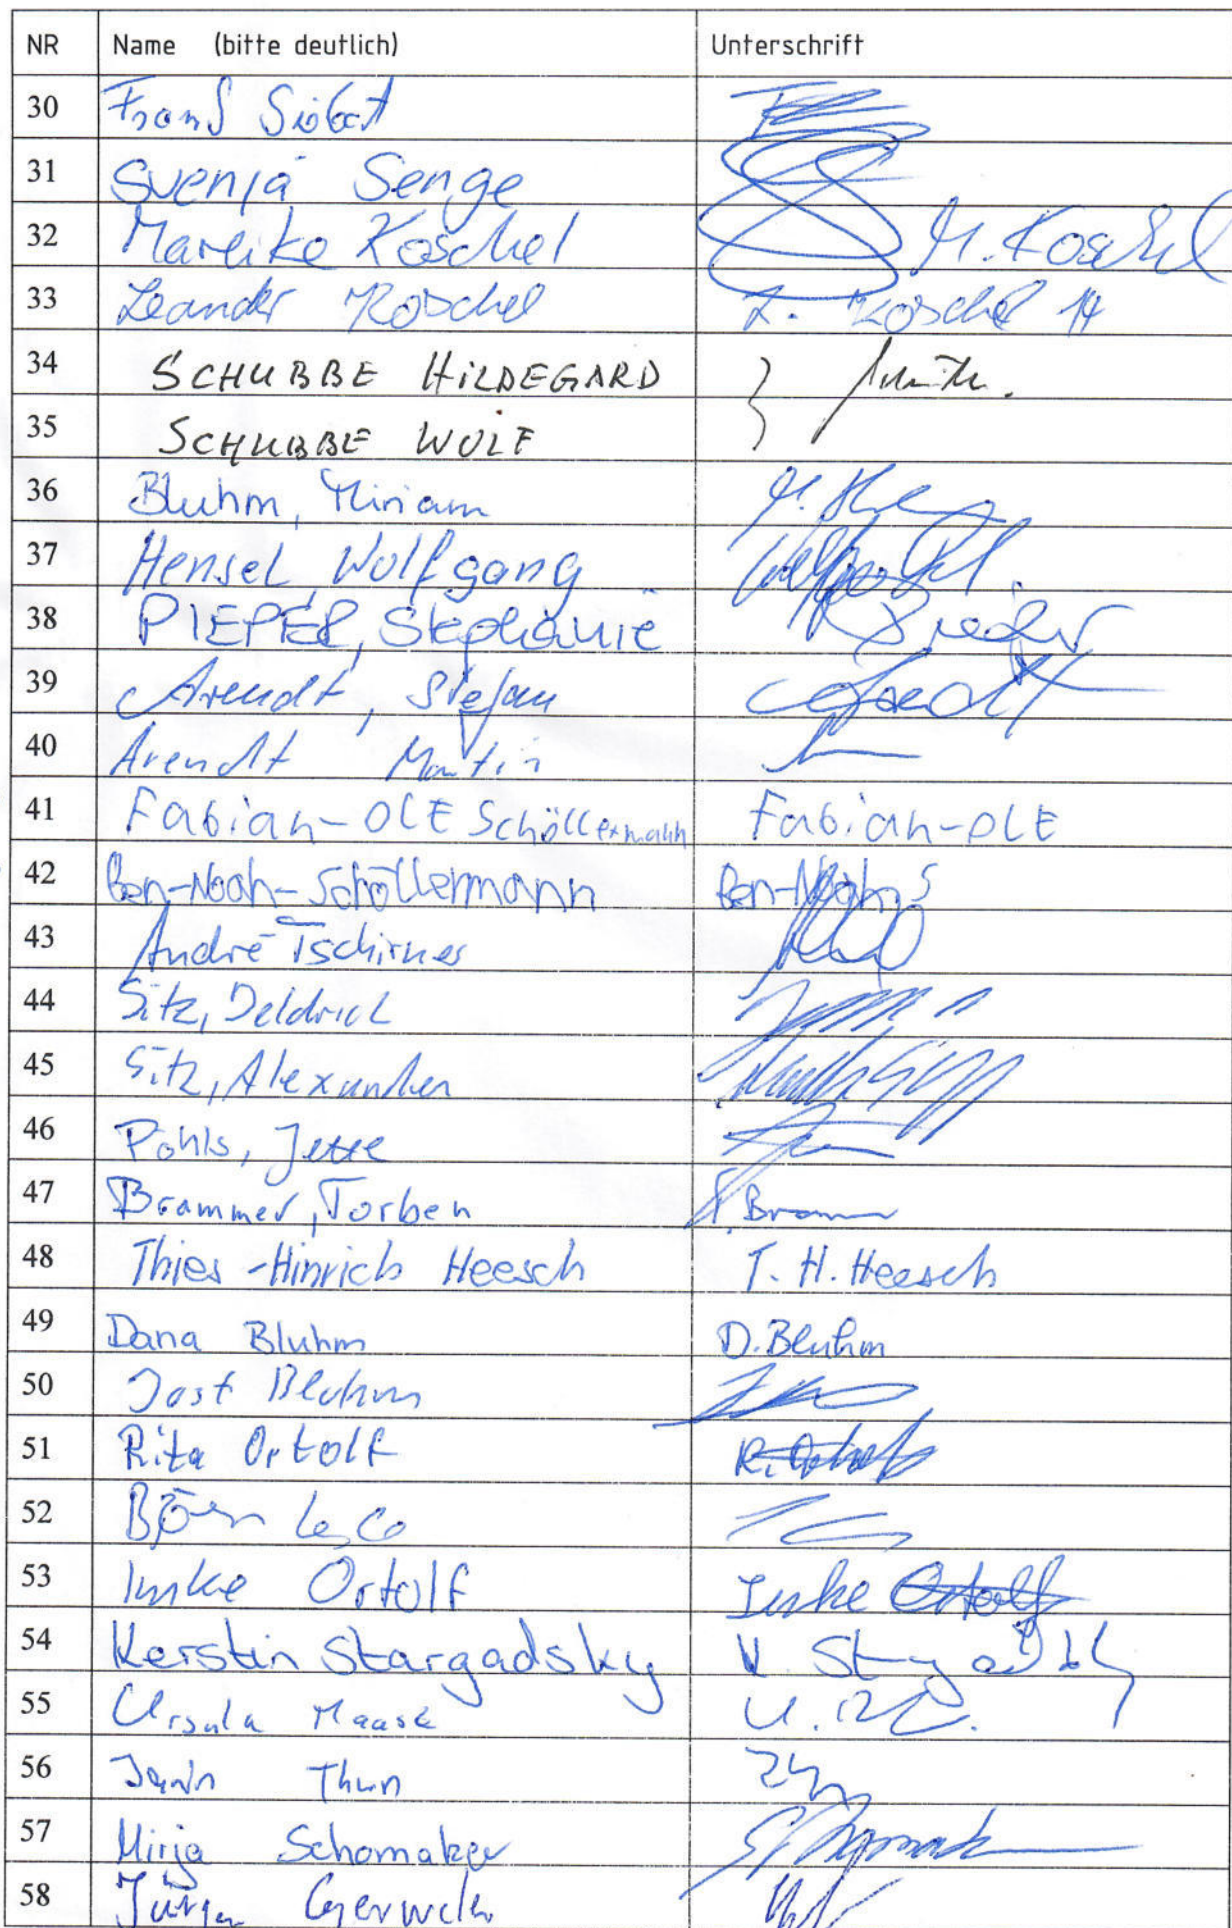 NR Name (bitte deutlich) Unterschrift
30
31 Svenja Senge
32 Mareike Koschel M. Koschel
33 Leander Koschel L. Koschel 14
34 SCHUBBE HILDEGARD
35 SCHUBBE WOLF
36 Bluhm, Miriam
37 Hensel, Wolfgang
38 PIEPER, Stephanie Pieper
39 Arendt, Stefan Arendt
40 Arendt Martin
41 Fabian-OLE Schöllermann Fabian-OLE
42 Ben-Noah-Schöllermann Ben-Noah S
43 André Tschirner
44 Sitz,
45 Sitz, Alexander
46 Pohls, Jette
47 Brammer, Torben T. Bram
48 Thies-Hinrich Heesch T. H. Heesch
49 Dana Bluhm D. Bluhm
50 Jost Bluhm
51 Rita Ortolf R. Ortolf
52 Björn
53 Imke Ortolf Imke Ortolf
54 Kerstin Stargadsky K. Stargadsky
55 Ursula Maase
56 Thun
57 Mirja Schomaker
58 Jürgen